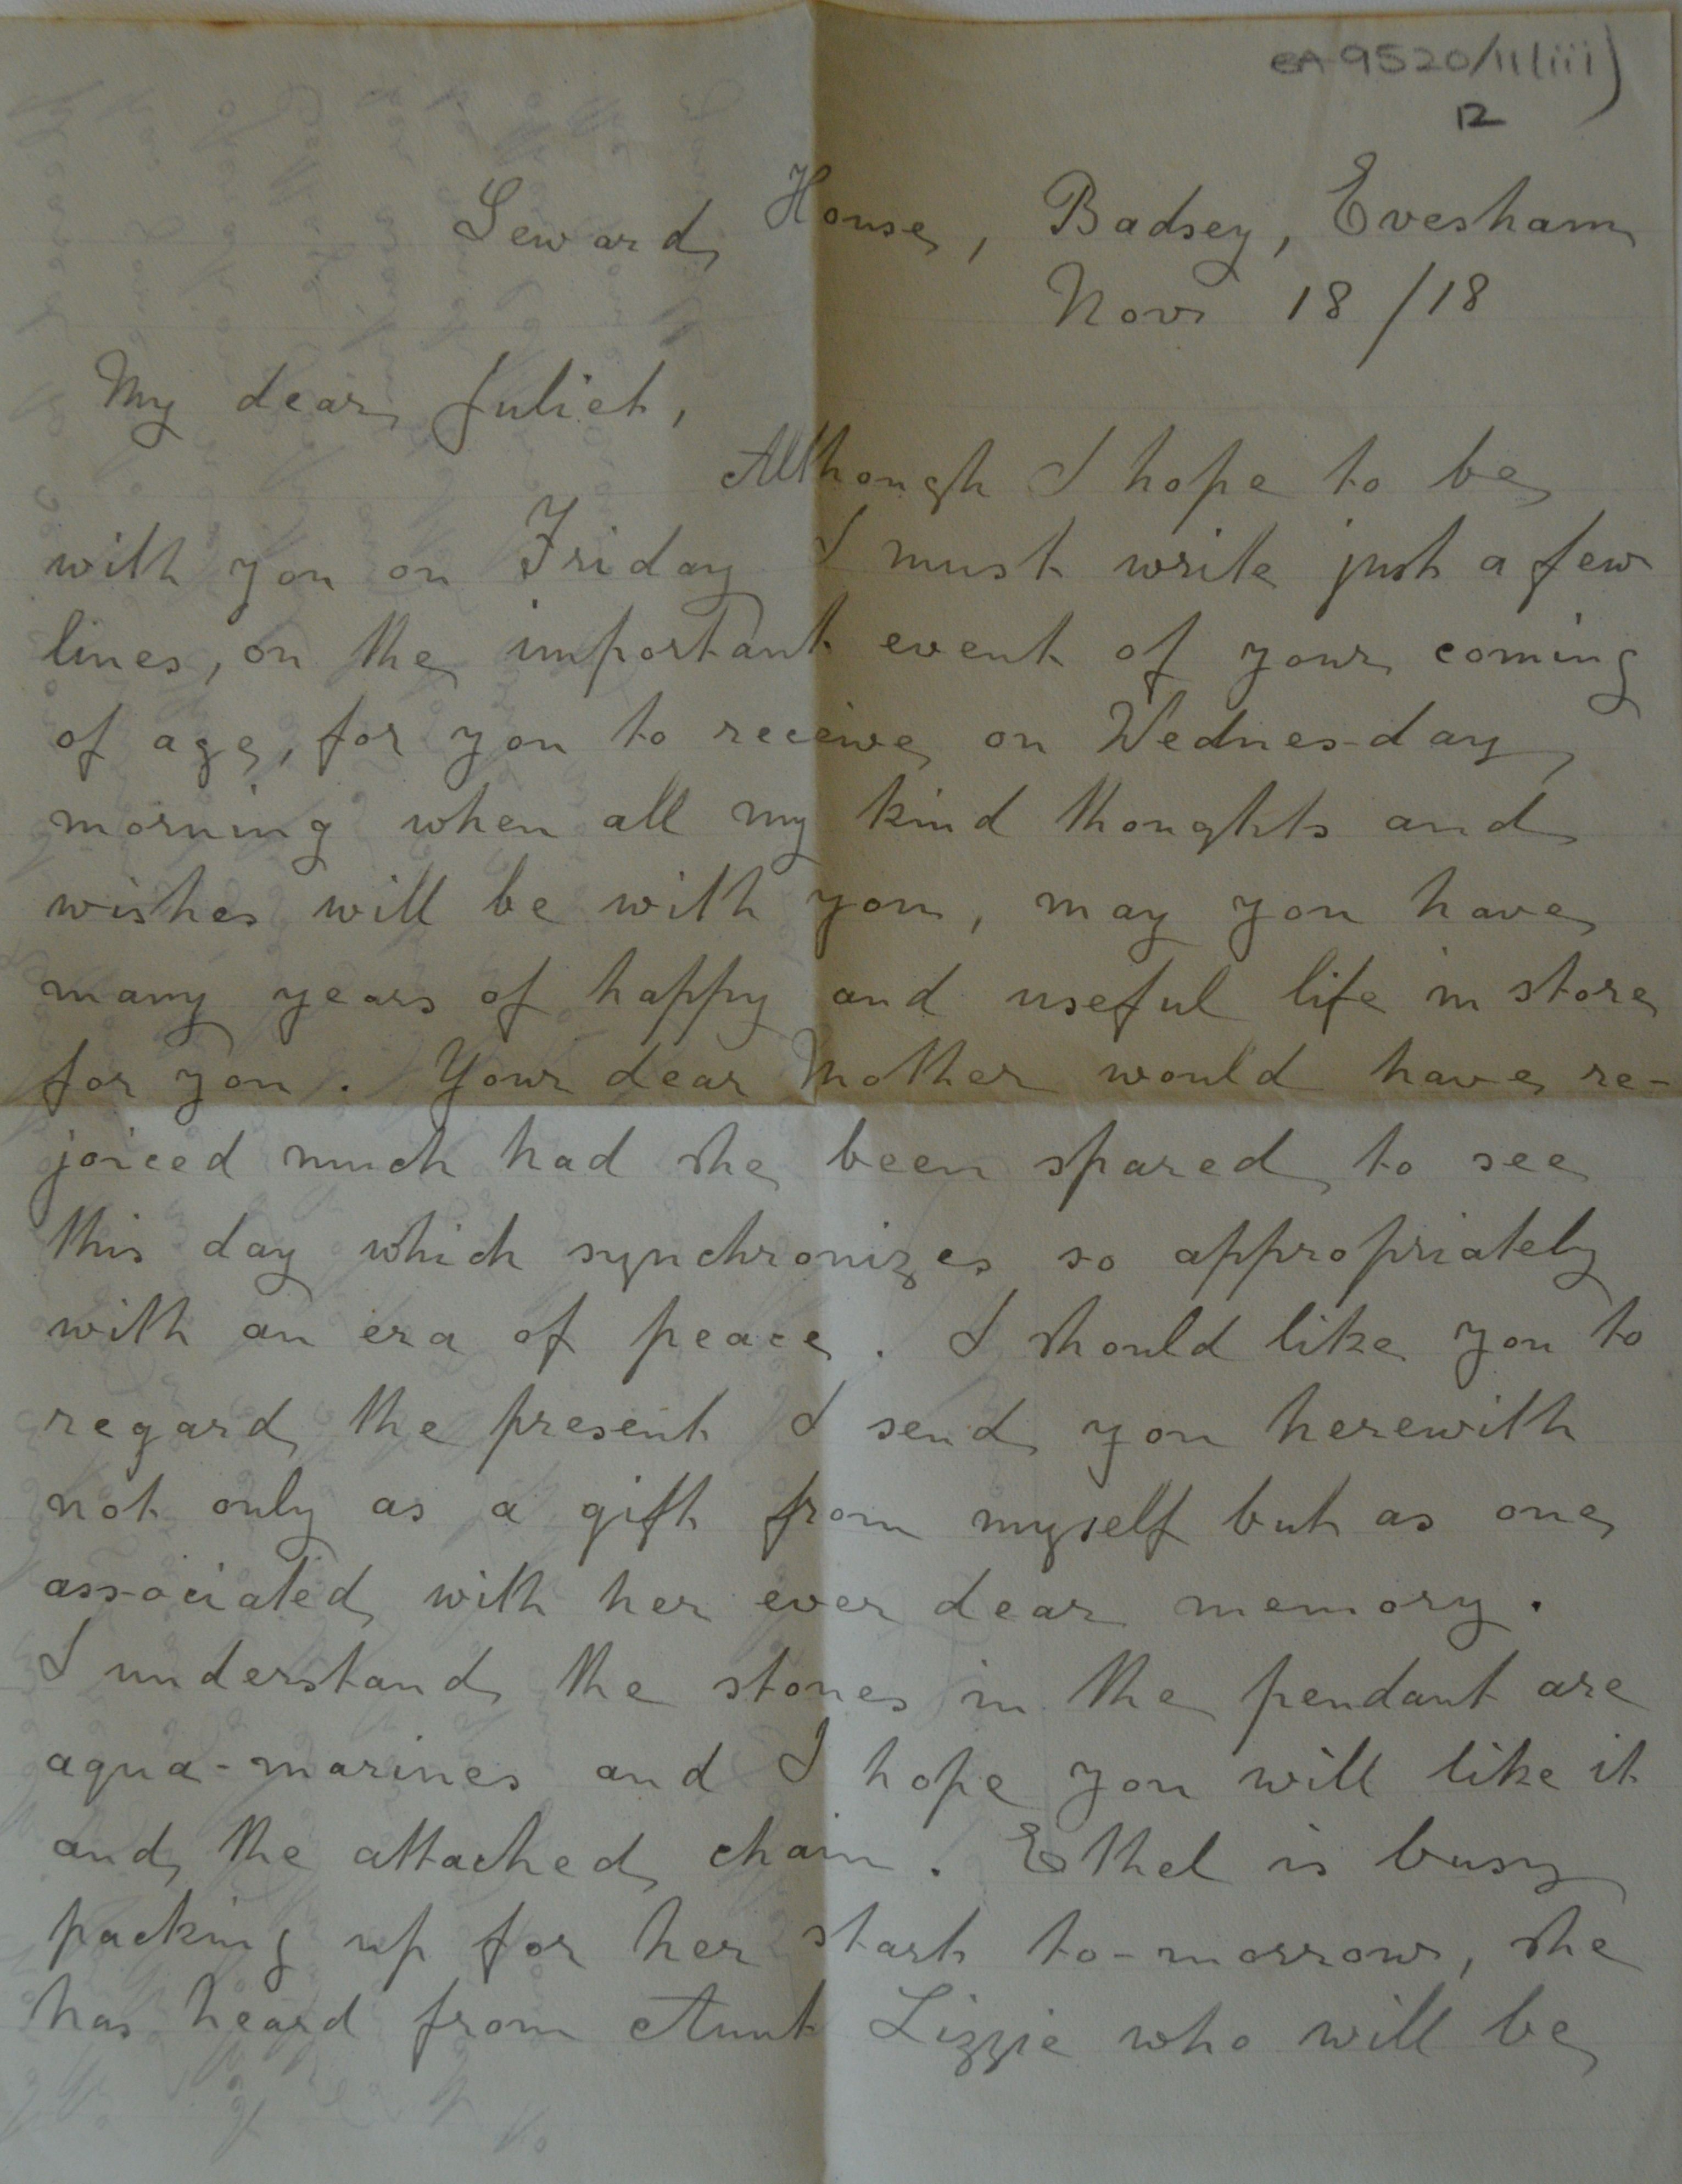 eA 9520/11(iii)
12
Seward House, Badsey, Evesham
Nov 18/18
My dear Juliet,
Although I hope to be
with you on Friday I must write just a few
lines, on the important event of your coming
of age, for you to receive on Wednesday
morning when all my kind thoughts and
wishes will be with you, may you have
many years of happy and useful life in store
for you. Your dear Mother would have re-
joiced much had she been spared to see
this day which synchronizes so appropriately
with an era of peace. I should like you to
regard the present I send you herewith
not only as a gift from myself but as one
associated with her ever dear memory.
I understand the stones in the pendant are
aqua-marines and I hope you will like it
and the attached chain. Ethel is busy
packing up for her start to-morrow, she
has heard from Aunt Lizzie who will be